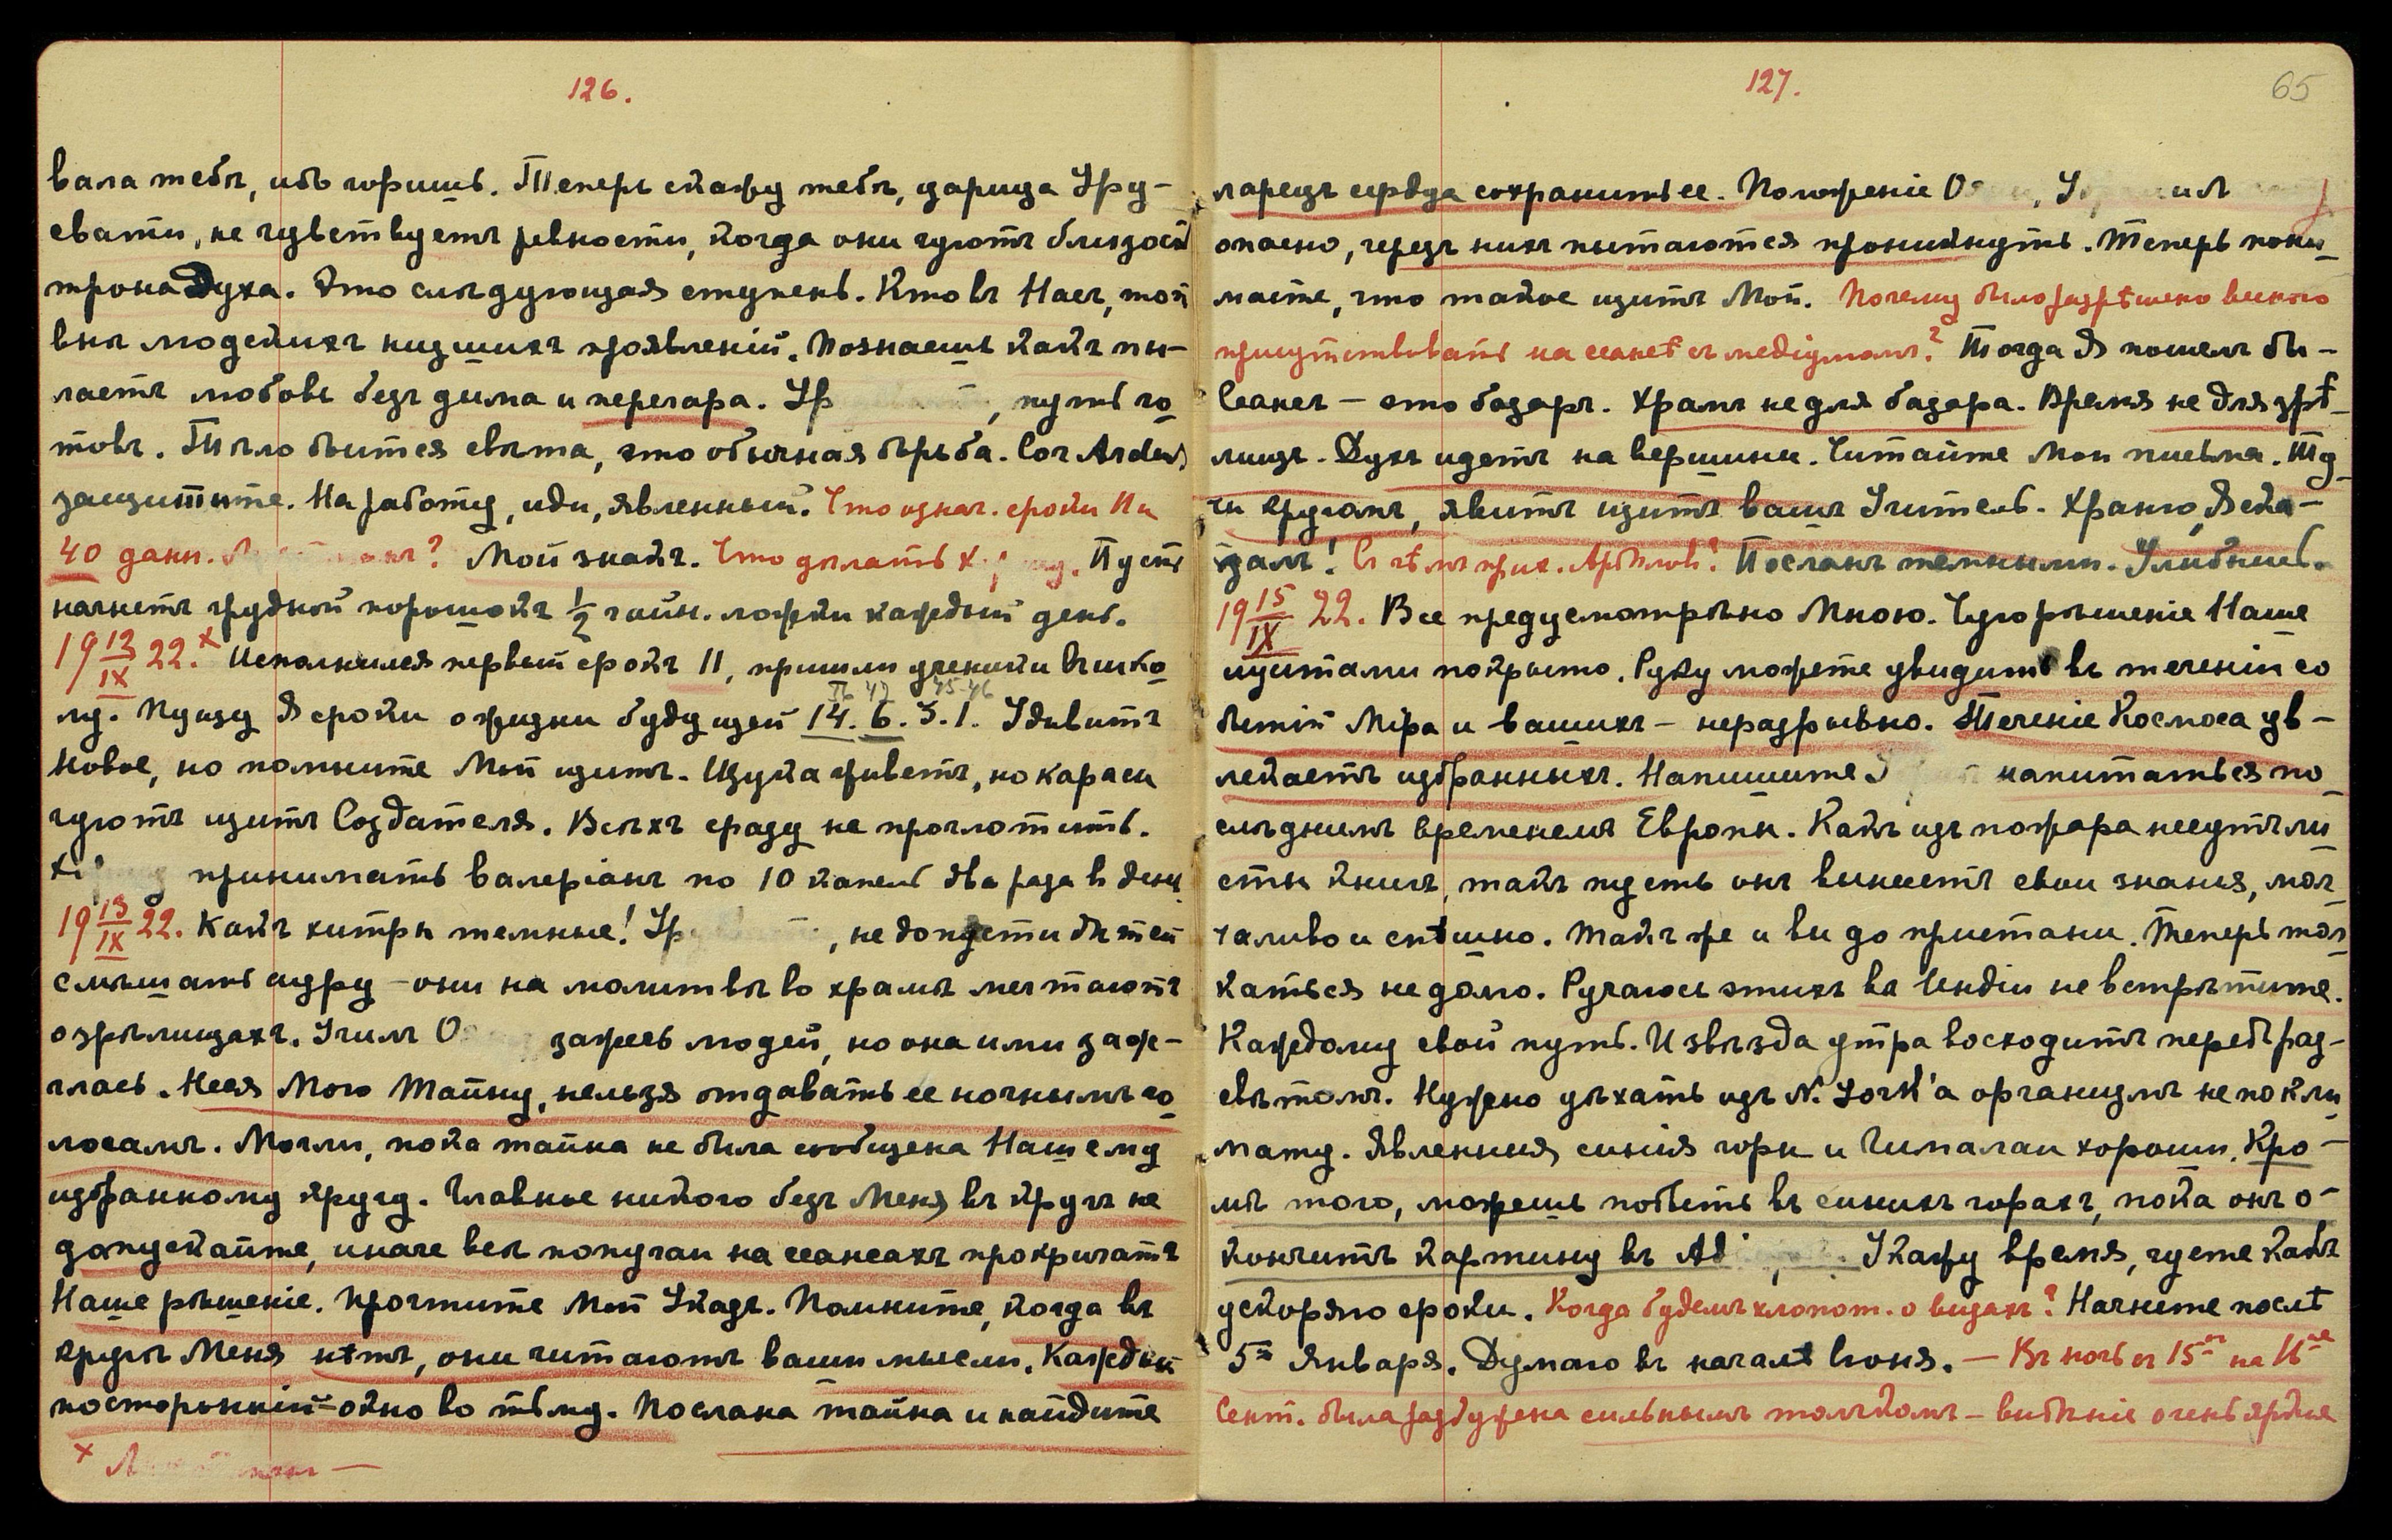 126.
вала тебѣ, ибо горишь. Теперь скажу тебѣ, царица Уру-
свати, не чувствуетъ ревности, когда они чуютъ близость
трона Духа. Это слѣдующая ступень. Кто въ Насъ, тотъ
внѣ людскихъ низшихъ проявленій. Познаешь какъ пы-
лаетъ любовь безъ дыма и перегара. Ур , путь го-
товъ. Тѣло бьется свѣта, это обычная борьба. Cor Ardens
защитите. На работу, иди, явленный. Что означ. сроки
40 данн. ? Мой знакъ. Что дѣлать Х . Пусть
начнетъ грудной порошокъ ½ чайн. ложки каждый день.
19 12/IX 22.x Исполнился первый срокъ 11, пришли ученики въ шко-
лу. Пущу Я сроки о жизни будущей 14. 6. 3. 1. Удивитъ
новое, но помните Мой щитъ. Щука живетъ, но караси
чуютъ щитъ Создателя. Всѣхъ сразу не проглотить.
Х принимать валеріанъ по 10 капель два раза въ день.
19 13/IX 22. Какъ хитры темные! Ур , не допусти дѣтей
смѣшать игру – они на молитвѣ во храмѣ мечтаютъ
о зрѣлищахъ. Учимъ О зажечь людей, но она ими заж-
глась. Неся Мою Тайну, нельзя отдавать ее ночнымъ го-
лосамъ. Могли, пока тайна не была сообщена Нашему
избранному кругу. Главное никого безъ Меня въ кругъ не
допускайте, иначе всѣ попугаи на сеансахъ прокричатъ
Наше рѣшеніе. Прочтите Мой Указъ. Помните, когда въ
кругѣ Меня нѣтъ, они читаютъ ваши мысли. Каждый
посторонній – окно во тьму. Послана тайна и найдите
x
127.
65
ларецъ сердца сохранить ее. Положеніе О , У и Л
опасно, черезъ нихъ пытаются проникнуть. Теперь пони-
маете, что такое щитъ Мой. Почему было разрѣшено
присутствовать на сеансѣ съ медіумомъ? Тогда Я пошелъ бы –
Сеансъ – это базаръ. Храмъ не для базара. Время не для зрѣ-
лищъ. Духъ идетъ на вершины. Читайте Мои письма. Ту-
чи кругомъ, явитъ щитъ вашъ Учитель. Храню, Я ска-
залъ! Съ чѣмъ прих. ? Посланъ темными. Улыбнись.
19 15/IX 22. Все предусмотрѣно Мною. Чую рѣшеніе Наше
щитами покрыто. Руку можете увидить въ теченіи со
бытій Міра и вашихъ – неразрывно. Теченіе Космоса ув-
лекаетъ избранныхъ. Напишите напитаться по-
слѣднимъ временемъ Европы. Какъ изъ пожара несутъ ли-
сты книгъ, такъ пусть онъ вынесетъ свои знанія, мол
чаливо и спѣшно. Такъ же и вы до пристани. Теперь тол
каться недолго. Ручаюсь этихъ въ Индіи не встрѣтите.
Каждому свой путь. И звѣзда утра восходитъ передъ раз-
свѣтомъ. Нужно уѣхать изъ N. York'а организмъ не по кли-
мату. Явленныя, синія горы и Гималаи хороши. Кро-
мѣ того, можешь побыть въ синихъ горахъ, пока онъ о-
кончитъ картину въ Ad . Укажу время, чуете какъ
ускоряю сроки. Когда будемъ хлопот. о визахъ? Начнете послѣ
5го Января. Думаю въ началѣ Іюня. – Въ ночь съ 15го на 16ое
Сент. была разбужена сильнымъ толчкомъ – видѣніе очень яркія